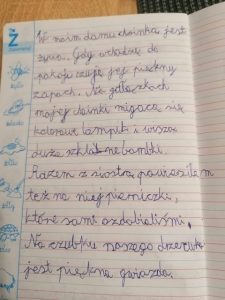 Ż
W moim domu choinka jest
żywa. Gdy wchodzę do
pokoju czuję jej piękny
zapach. Na gałązkach
mojej choinki migacą się
kolorowe lampki i wiszą
duże szklane bombki.
Razem z siostrą powiesiłem
też na niej pierniczki,
które sami ozdobiliśmy.
Na czubku naszego drzewka
jest piękna gwiazda.